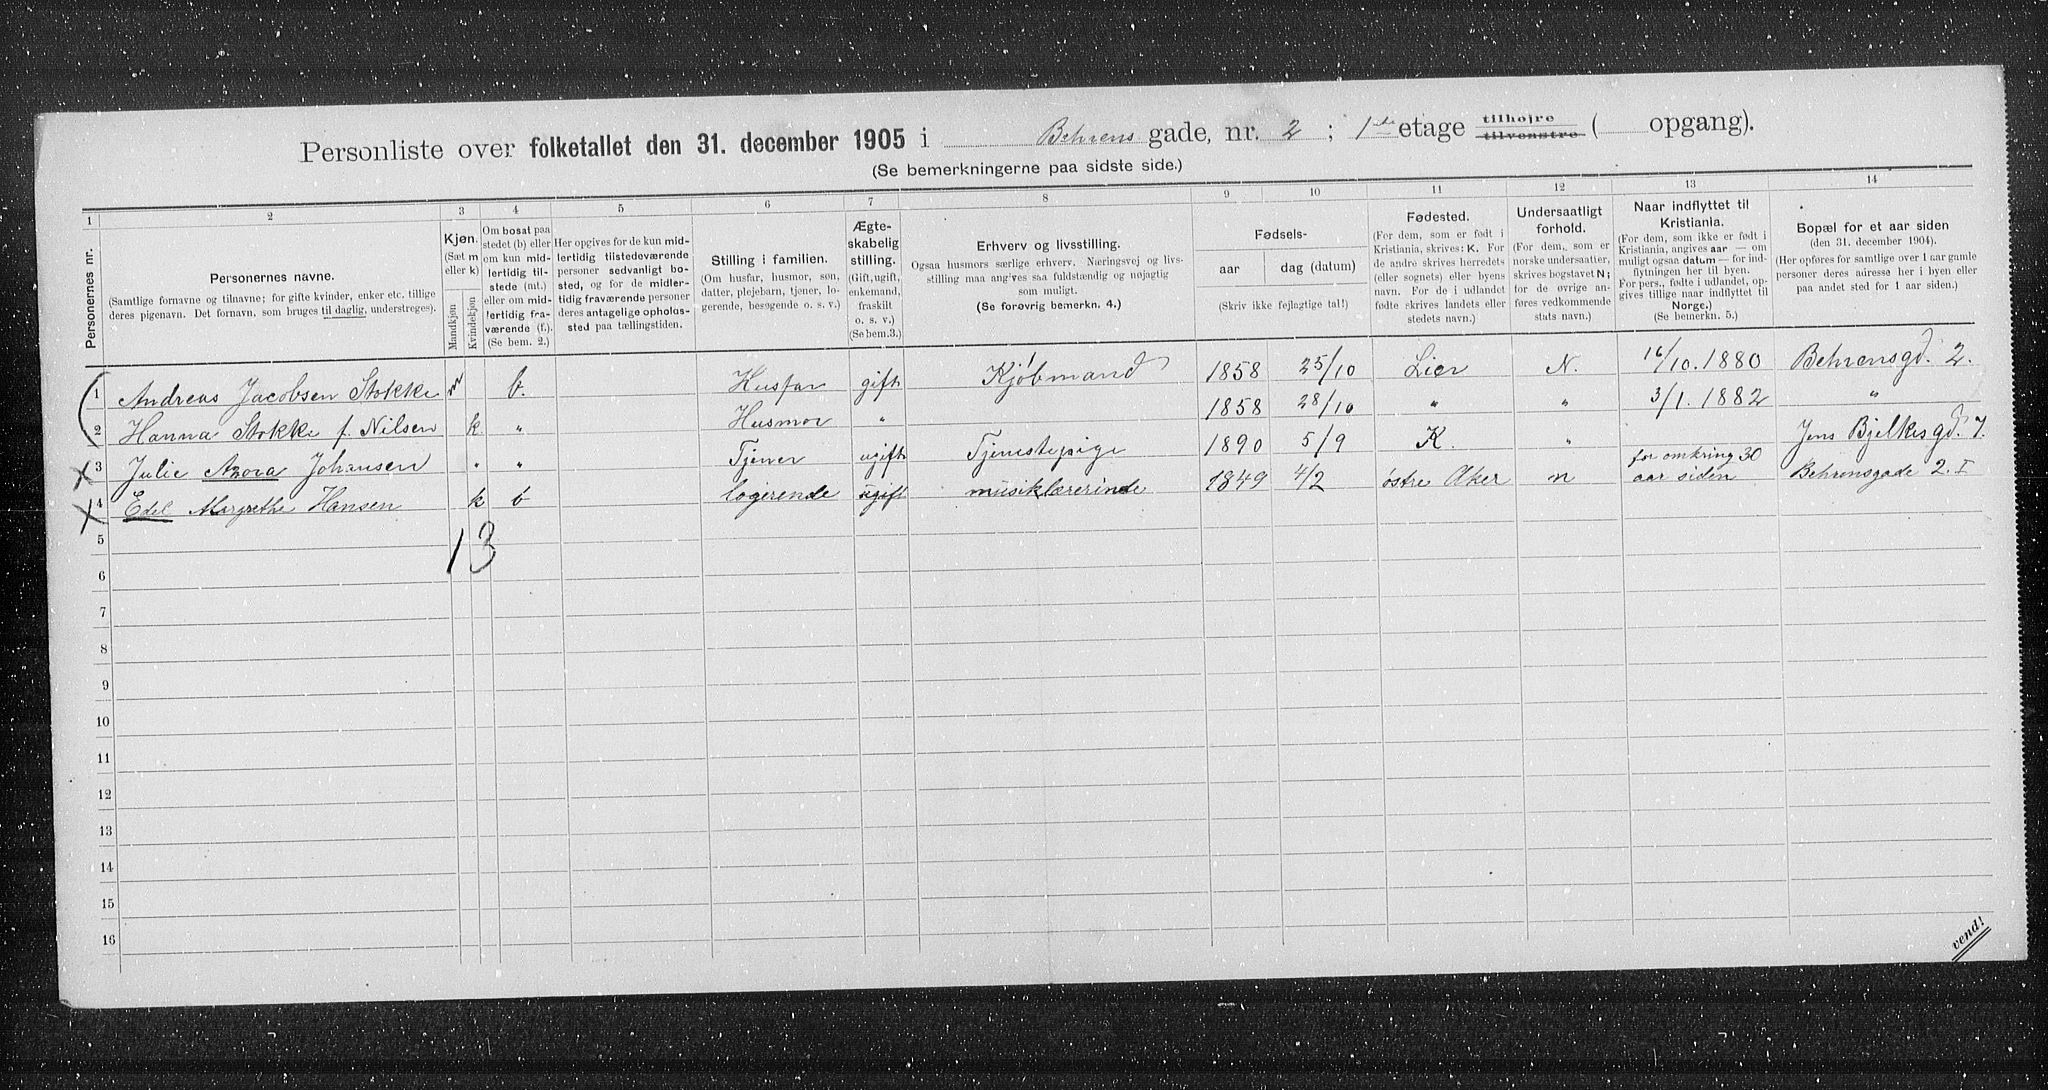 Personliste over folketallet den 31. december 1905 i Behrens gade, nr. 2 ; 1ste etage tilhøjre tilvenstre ( opgang).
(Se bemerkningerne paa sidste side.)
1 2 3 4 5 6 7 8 9 10 11 12 13 14
Personernes nr.
Personernes navne.
(Samtlige fornavne og tilnavne; for gifte kvinder, enker etc. tillige
deres pigenavn. Det fornavn, som bruges til daglig, understreges).
Kjøn.
(Sæt m
eller k)
Mandkjøn
Kvindekjøn
Om bosat paa
stedet (b) eller
om kun mid-
lertidig til-
stede (mt.)
eller om mid-
lertidig fra-
værende (f.).
(Se bem. 2.)
Her opgives for de kun mid-
lertidig tilstedeværende
personer sedvanligt bo-
sted, og for de midler-
tidig fraværende personer
deres antagelige opholds-
sted paa tællingstiden.
Stilling i familien.
(Om husfar, husmor, søn,
datter, plejebarn, tjener, lo-
gerende, besøgende o. s. v.)
Ægte-
skabelig
stilling.
(Gift, ugift,
enkemand,
fraskilt
o. s. v.)
(Se bem.3.)
Erhverv og livsstilling.
Ogsaa husmors særlige erhverv. Næringsvej og livs-
stilling maa angives saa fuldstændig og nøjagtig
som muligt.
(Se forøvrig bemerkn. 4.)
Fødsels-
aar
dag (datum)
(Skriv ikke fejlagtige tal!)
Fødested.
(For dem, som er født i
Kristiania, skrives: K. For
de andre skrives herredets
(eller sognets) eller byens
navn. For de i udlandet
fødte skrives landets eller
stedets navn.)
Undersaatligt
forhold.
(For dem, som er
norske undersaatter,
skrives bogstavet N;
for de øvrige an-
føres vedkommende
stats navn.)
Naar indflyttet til
Kristiania.
(For dem, som ikke er født i
Kristiania, angives aar — om
muligt ogsaa datum — for ind-
flytningen her til byen.
For pers., fødte i udlandet, op-
gives tillige naar indflyttet til
Norge.)
(Se bemerkn. 5.)
Bopæl for et aar siden
(den 31. december 1904).
(Her opføres for samtlige over 1 aar gamle
personer deres adresse her i byen eller
paa andet sted for 1 aar siden.)
1 Andreas Jacobsen Stokke m b. Husfar gift Kjøbmand 1858 25/10 Lier N. 16/10. 1880 Behrensgd. 2.
2 Hanna Stokke f. Nilsen k " Husmor " 1858 28/10 " " 3/1. 1882 "
3 Julie Azora Johansen " " Tjener ugift Tjenestepige 1890 5/9 K. " Jens Bjelkesgd. 7.
4 Edel Margrethe Hansen k b logerende ugift musiklærerinde 1849 4/2 østre Aker n for omkring 30 aar siden Behrensgade 2. I
13
5
6
7
8
9
10
11
12
13
14
15
16
vend!